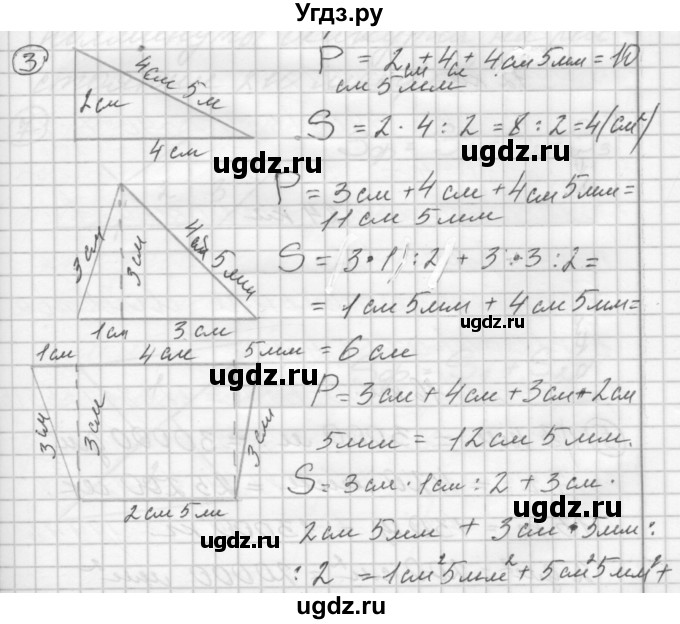 Угдз.ру
3.
2см
4см 5м
4см
P = 2см + 4см + 4см 5мм = 10
см 5мм
S = 2 · 4 : 2 = 8 : 2 = 4 (см²)
ugdz.ru
ugdz.ru
P = 3см + 4см + 4см 5мм =
11см 5мм
3см
3см
4см 5мм
1см
3см
S = (3·1):2 + 3·3:2 =
= 1см 5мм + 4см 5мм =
ugdz.ru
= 6см
1см
4см
5мм
ugdz.ru
3см
3см
3см
2см 5мм
P = 3см + 4см + 3см + 2см
5мм = 12см 5мм.
S = 3см · 1см : 2 + 3см ·
ugdz.ru
2см 5мм + 3см · 5мм :
: 2 = 1см² 5мм² + 5см² 5мм² +
ugdz.ru
ugdz.ru